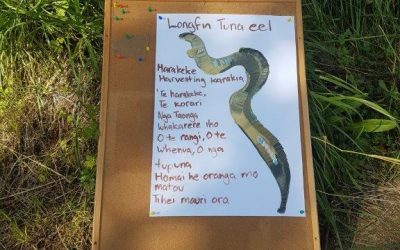 Longfin Tuna eel
Harakeke
Harvesting karakia
'Te harakeke,
Te korari
Nga Taonga
whakarere iho
O te rangi, O te
Whenua, O nga
tupuna
Homai he oranga mo
matou
Tihei mauri ora